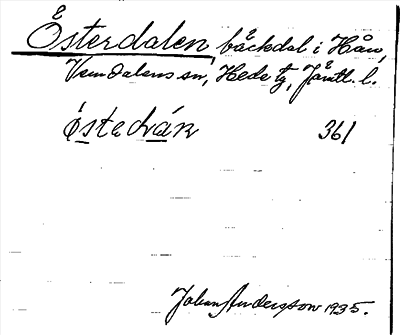 Österdalen, bäckdal i Hån,
Vemdalens sn, Hede tg, Jämtl. l.
östedrán 361
Johan Anderson 1935.